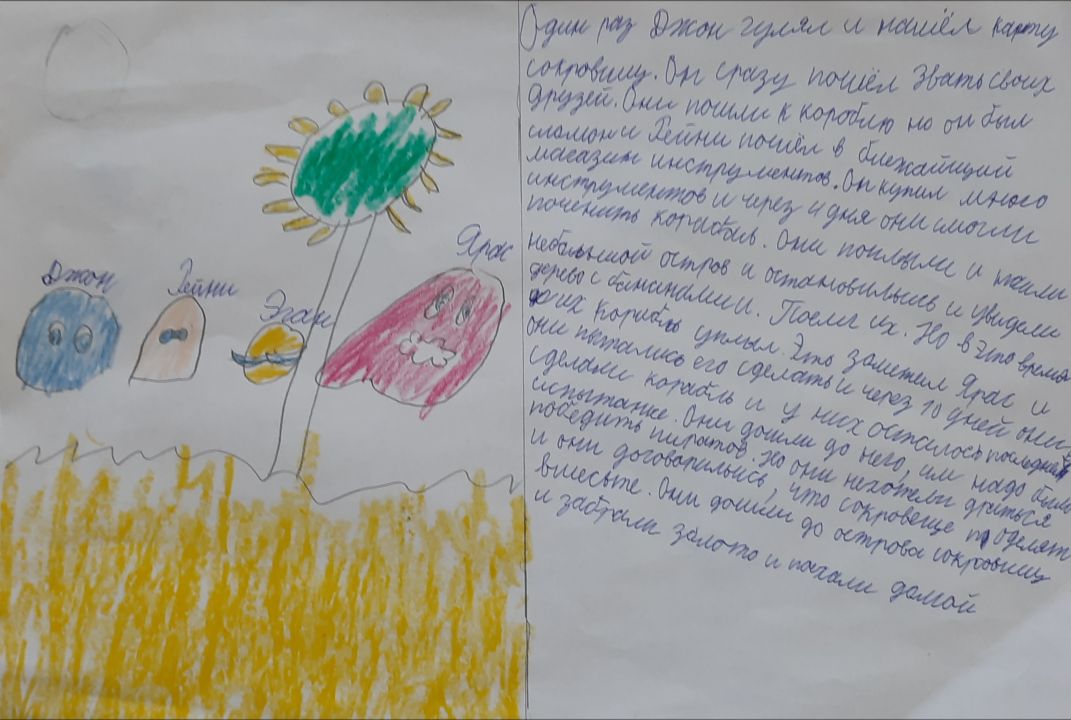 Джон
Хейни
Эган
Ярас
Один раз Джон гулял и нашёл карту
сокровищ. Он сразу пошёл звать своих
друзей. Они пошли к кораблю но он был
сломан и Хейни пошёл в ближайщий
магазин инструментов. Он купил много
инструментов и через 4 дня они смогли
починить корабль. Они поплыли и нашли
небольшой остров и остановились и увидели
дерево с бананами. Поели их. Но в это время
их корабль уплыл. Это заметел Ярас и
они пытались его сделать и через 10 дней они
сделали корабль и у них осталось последнее
испытание. Они дошли до него, им надо было
победить пиратов. Но они нехотели драться
и они договорились, что сокровеще поделят
вместе. Они дошли до острова сокровищ
и забрали золото и пахали домой